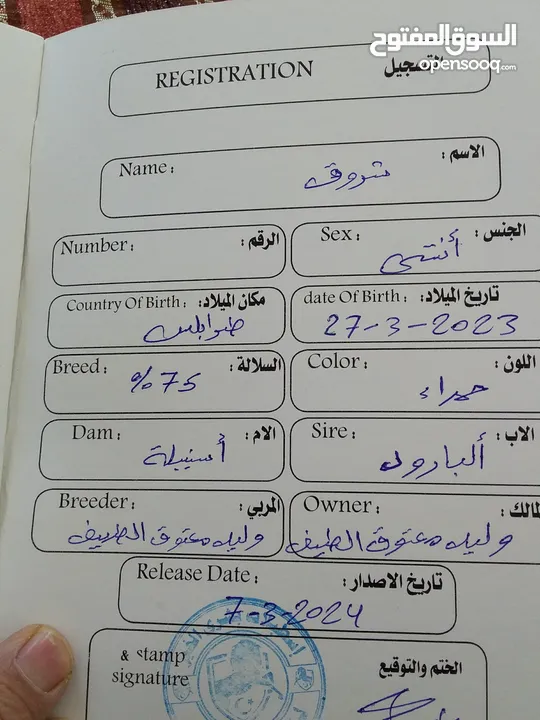 السوق المفتوح
opensooq.com
REGISTRATION التسجيل
Name: الاسم:
شروق
Number: الرقم: Sex: الجنس:
أنثى
Country Of Birth: مكان الميلاد: date Of Birth: تاريخ الميلاد:
طرابلس 27-3-2023
Breed: السلالة: Color: اللون:
%75 حمراء
Dam: الام: Sire: الاب:
البارود
Breeder: المربي: Owner: المالك:
وليد معتوق وليد معتوق
Release Date: تاريخ الاصدار:
7-3-2024
& stamp الختم والتوقيع
signature